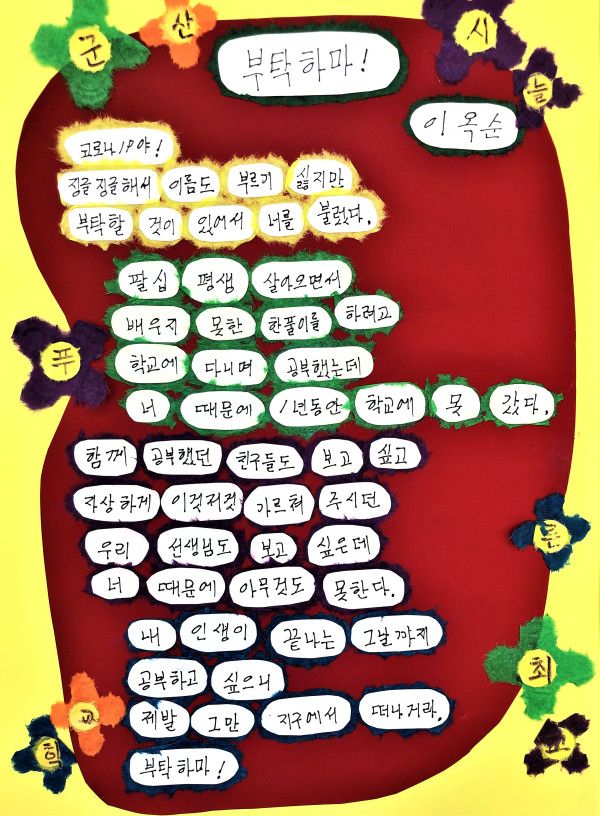 군
산
시
늘
부탁하마!
이옥순
코로나19야!
징글징글해서 이름도 부르기 싫지만
부탁할 것이 있어서 너를 불렀다.
팔십 평생 살아오면서
배우지 못한 한풀이를 하려고
학교에 다니며 공부했는데
너 때문에 1년동안 학교에 못 갔다.
함께 공부했던 친구들도 보고 싶고
자상하게 이것저것 가르쳐 주시던
우리 선생님도 보고 싶은데
너 때문에 아무것도 못한다.
내 인생이 끝나는 그날까지
공부하고 싶으니
제발 그만 지구에서 떠나거라.
부탁하마!
푸
른
학
교
최
고